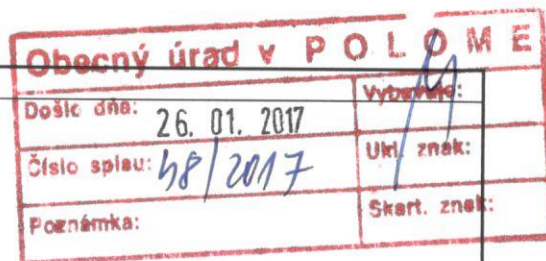 Obecný úrad v POLOME
Došlo dňa: 26. 01. 2017
Vybavuje:
Číslo spisu: 58/2017
Ukl. znak:
Poznámka:
Skart. znak: